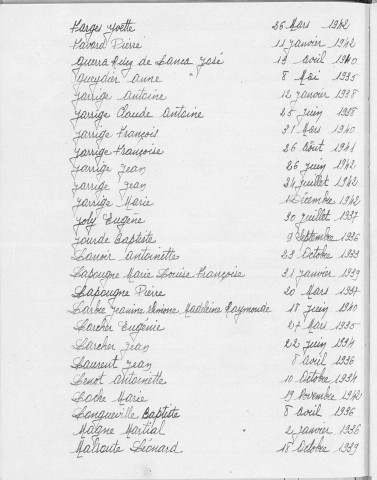 Farges Yvette 26 Mars 1942
Favard Pierre 11 Janvier 1942
Guerra Ruiz de Lanca José 13 avril 1940
Gueydier Anne 8 Mai 1935
Jarrige Antoine 12 Janvier 1938
Jarrige Claude Antoine 25 Juin 1938
Jarrige François 31 Mars 1940
Jarrige Françoise 26 Août 1941
Jarrige Jean 26 Juin 1942
Jarrige Jean 24 Juillet 1942
Jarrige Marie 1 Décembre 1942
Joly Eugène 30 Juillet 1937
Jourde Baptiste 9 Septembre 1936
Lanoir Antoinette 23 Octobre 1933
Lapougne Marie Louise Françoise 31 Janvier 1939
Lapougne Pierre 20 Mars 1937
Larbre Jeanine Simone Madeleine Raymonde 18 Juin 1940
Larcher Eugénie 27 Mars 1935
Larcher Jean 22 Juin 1934
Laurent Jean 8 avril 1936
Lenot Antoinette 10 Octobre 1934
Loche Marie 19 Novembre 1942
Longueville Baptiste 8 avril 1936
Magne Martial 2 Janvier 1936
Malroute Léonard 18 Octobre 1939